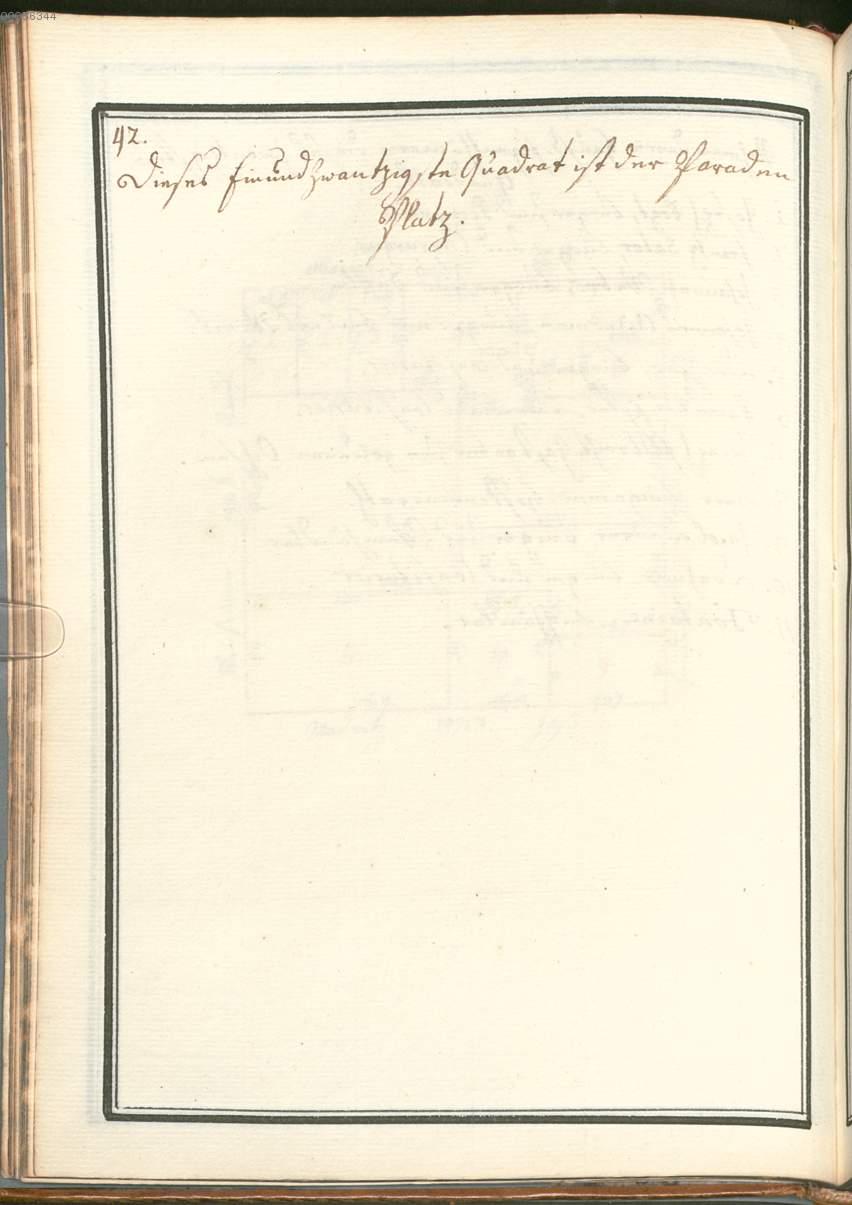 42.
Dieses Einundzwantzigste Quadrat ist der Paraden
Platz.